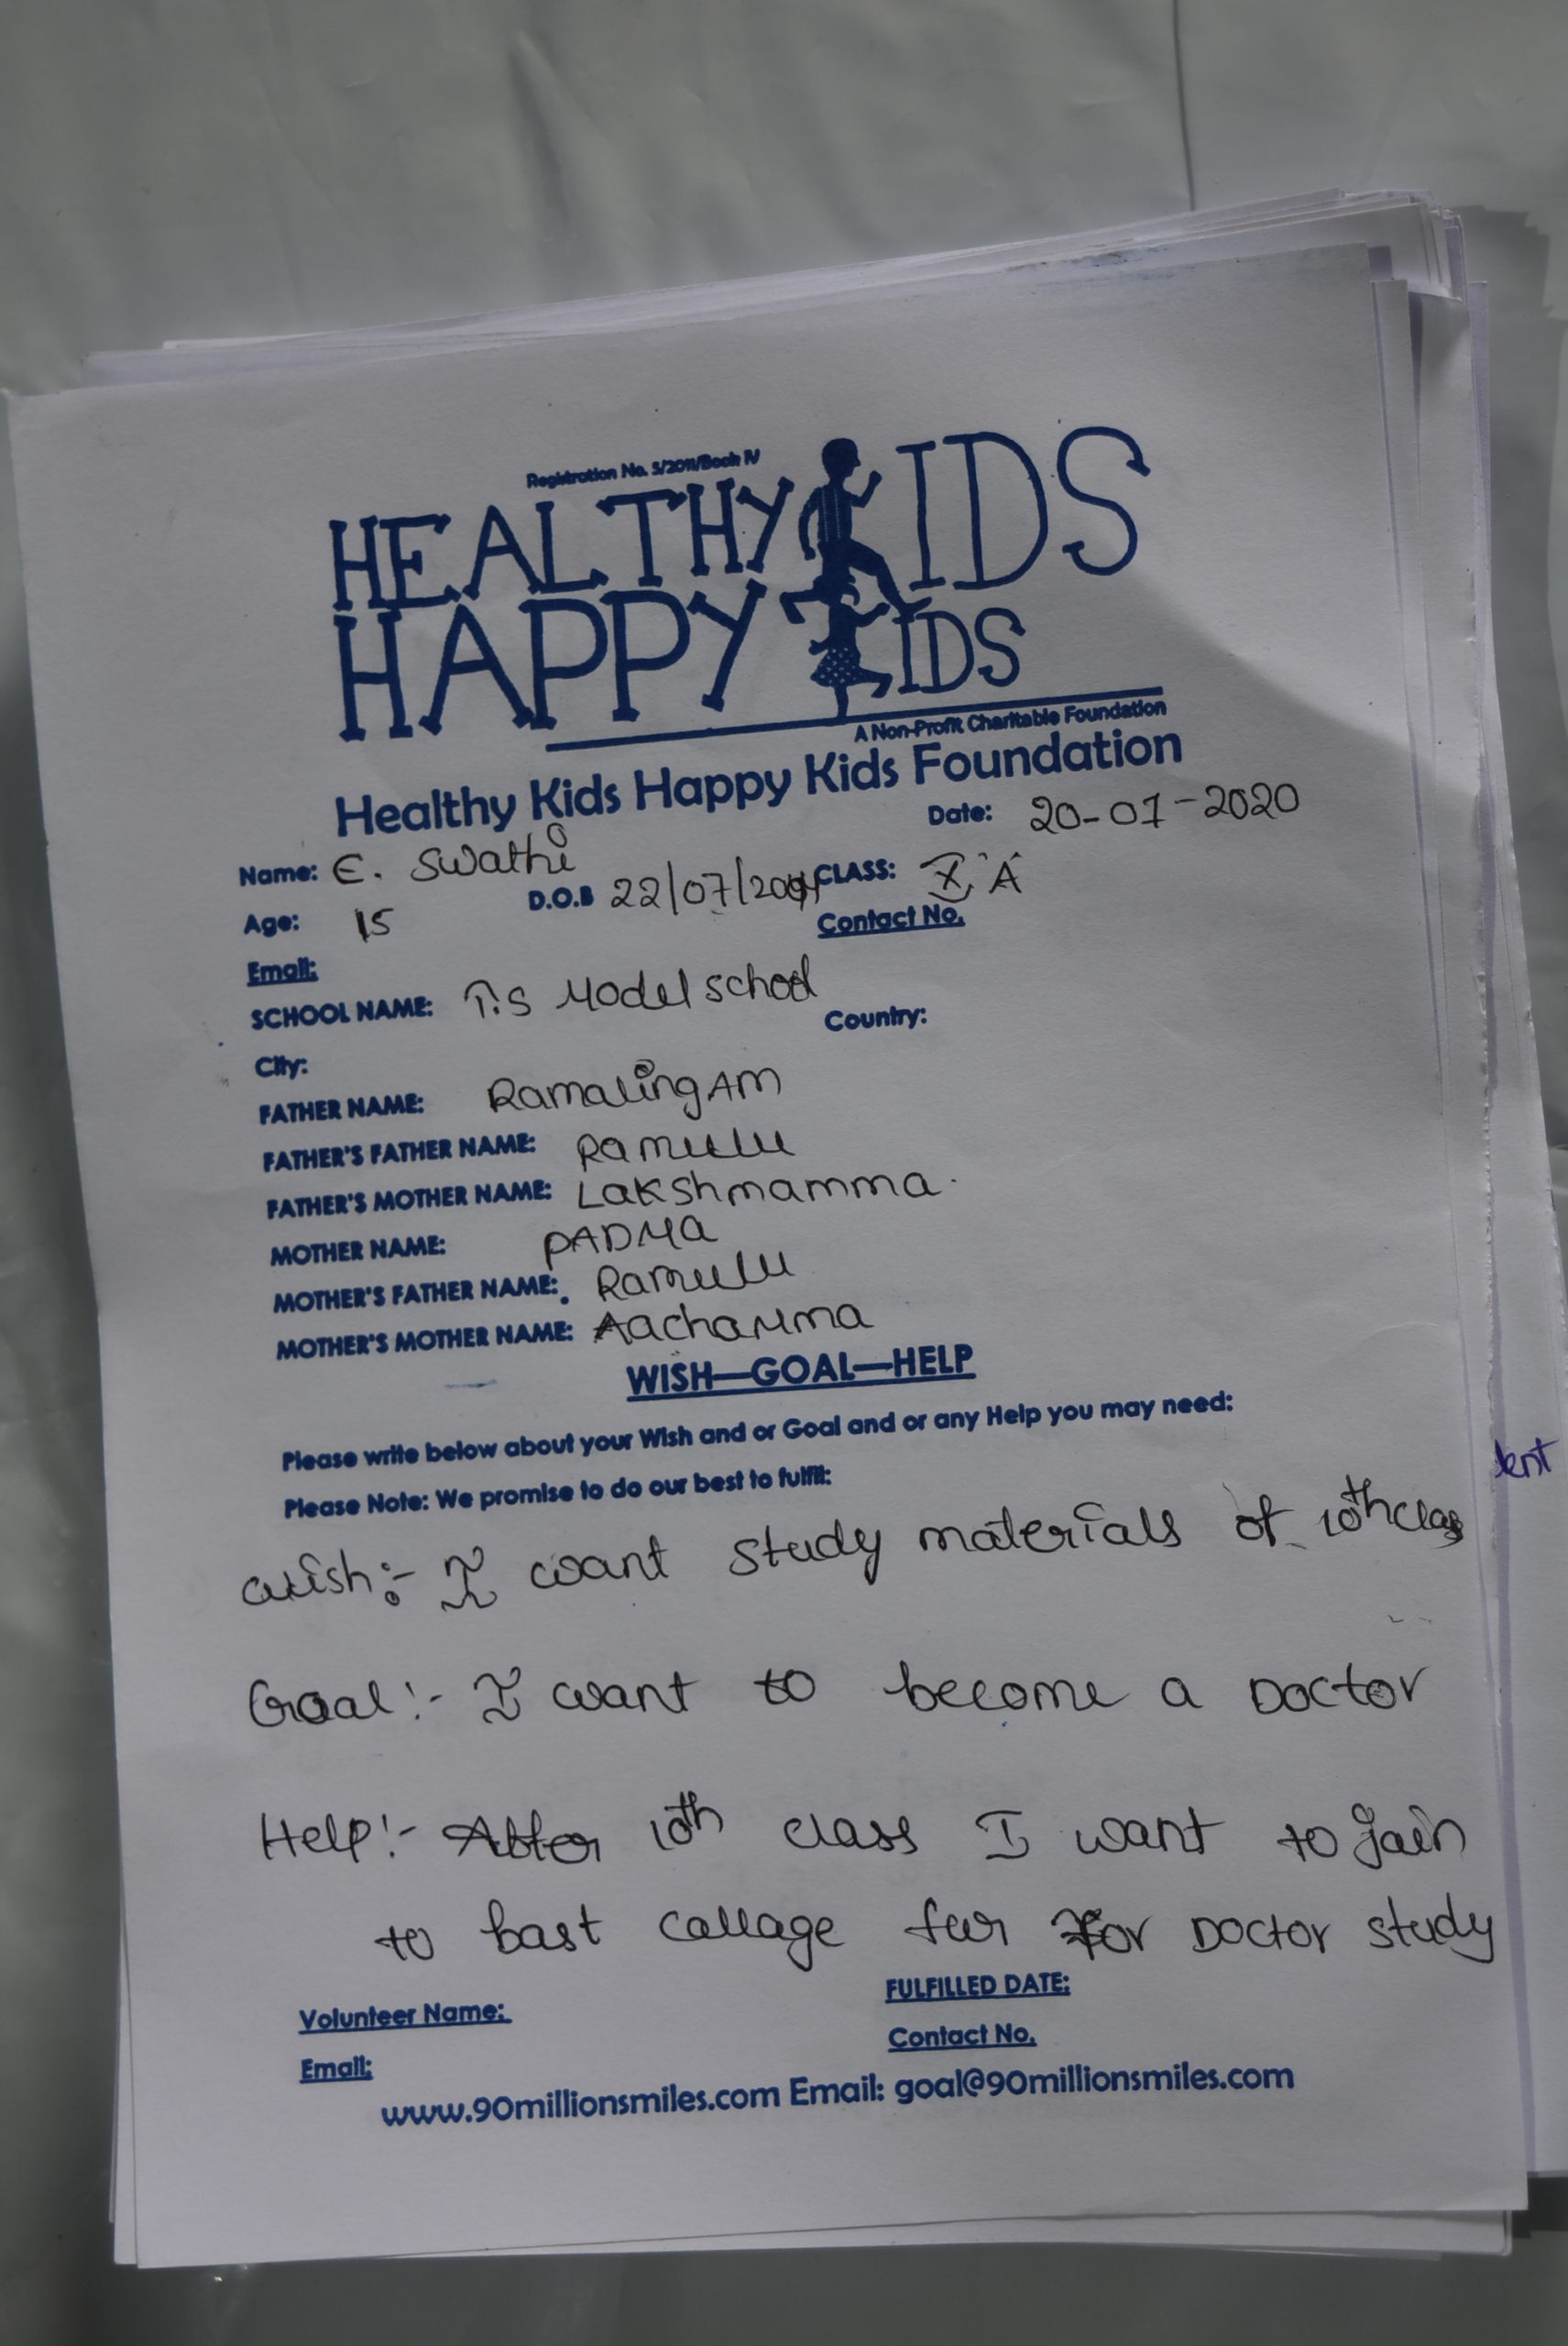 Registration No. 5/2011/Book IV
HEALTHY KIDS
HAPPY KIDS
A Non-Profit Charitable Foundation
Healthy Kids Happy Kids Foundation
Date: 20-07-2020
Name: E. Swathi
Age: 15 D.O.B 22/07/2004 CLASS: X 'A'
Email: Contact No.
SCHOOL NAME: T.S Model school
City: Country:
FATHER NAME: RamalingAM
FATHER'S FATHER NAME: Ramulu
FATHER'S MOTHER NAME: Lakshmamma.
MOTHER NAME: PADMa
MOTHER'S FATHER NAME: Ramulu
MOTHER'S MOTHER NAME: Aachamma
WISH—GOAL—HELP
Please write below about your Wish and or Goal and or any Help you may need:
Please Note: We promise to do our best to fulfil:
dent
wish:- I want study materials of 10th class
Goal:- I want to become a Doctor
Help:- After 10th class I want to join
to bast callage for for Doctor study
Volunteer Name: FULFILLED DATE:
Email: Contact No.
www.90millionsmiles.com Email: goal@90millionsmiles.com